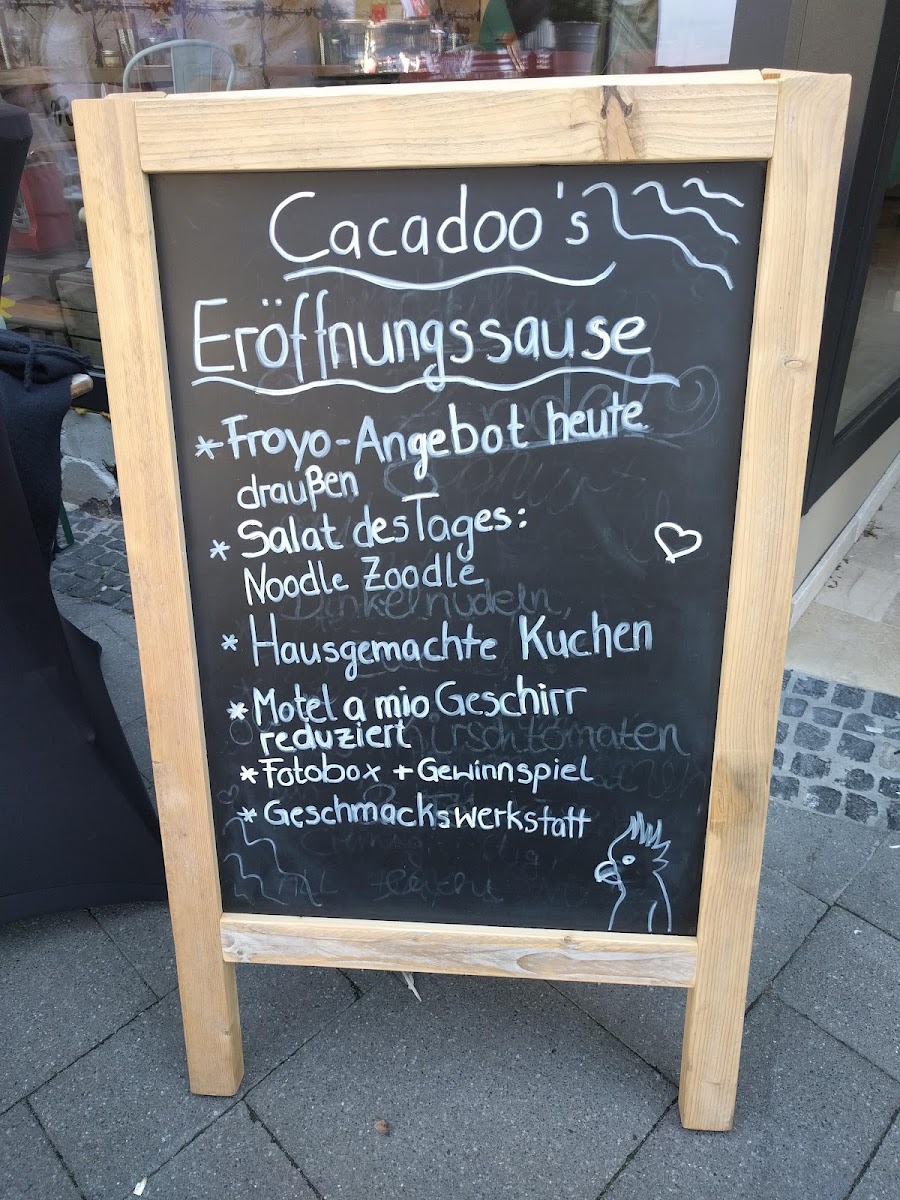 Cacadoo's
Eröffnungssause
* Froyo-Angebot heute
draußen
* Salat des Tages:
Noodle Zoodle
Dinkelnudeln,
* Hausgemachte Kuchen
* Motel a mio Geschirr
reduziert
Kirschtomaten
* Fotobox + Gewinnspiel
* Geschmackswerkstatt